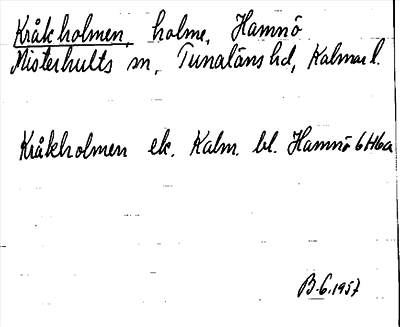 Kråkholmen, holme, Hamnö
Misterhults sn, Tunaläns hd, Kalmar l.
Kråkholmen ek. Kalm. bl. Hamnö 6H6a
B.G. 1957